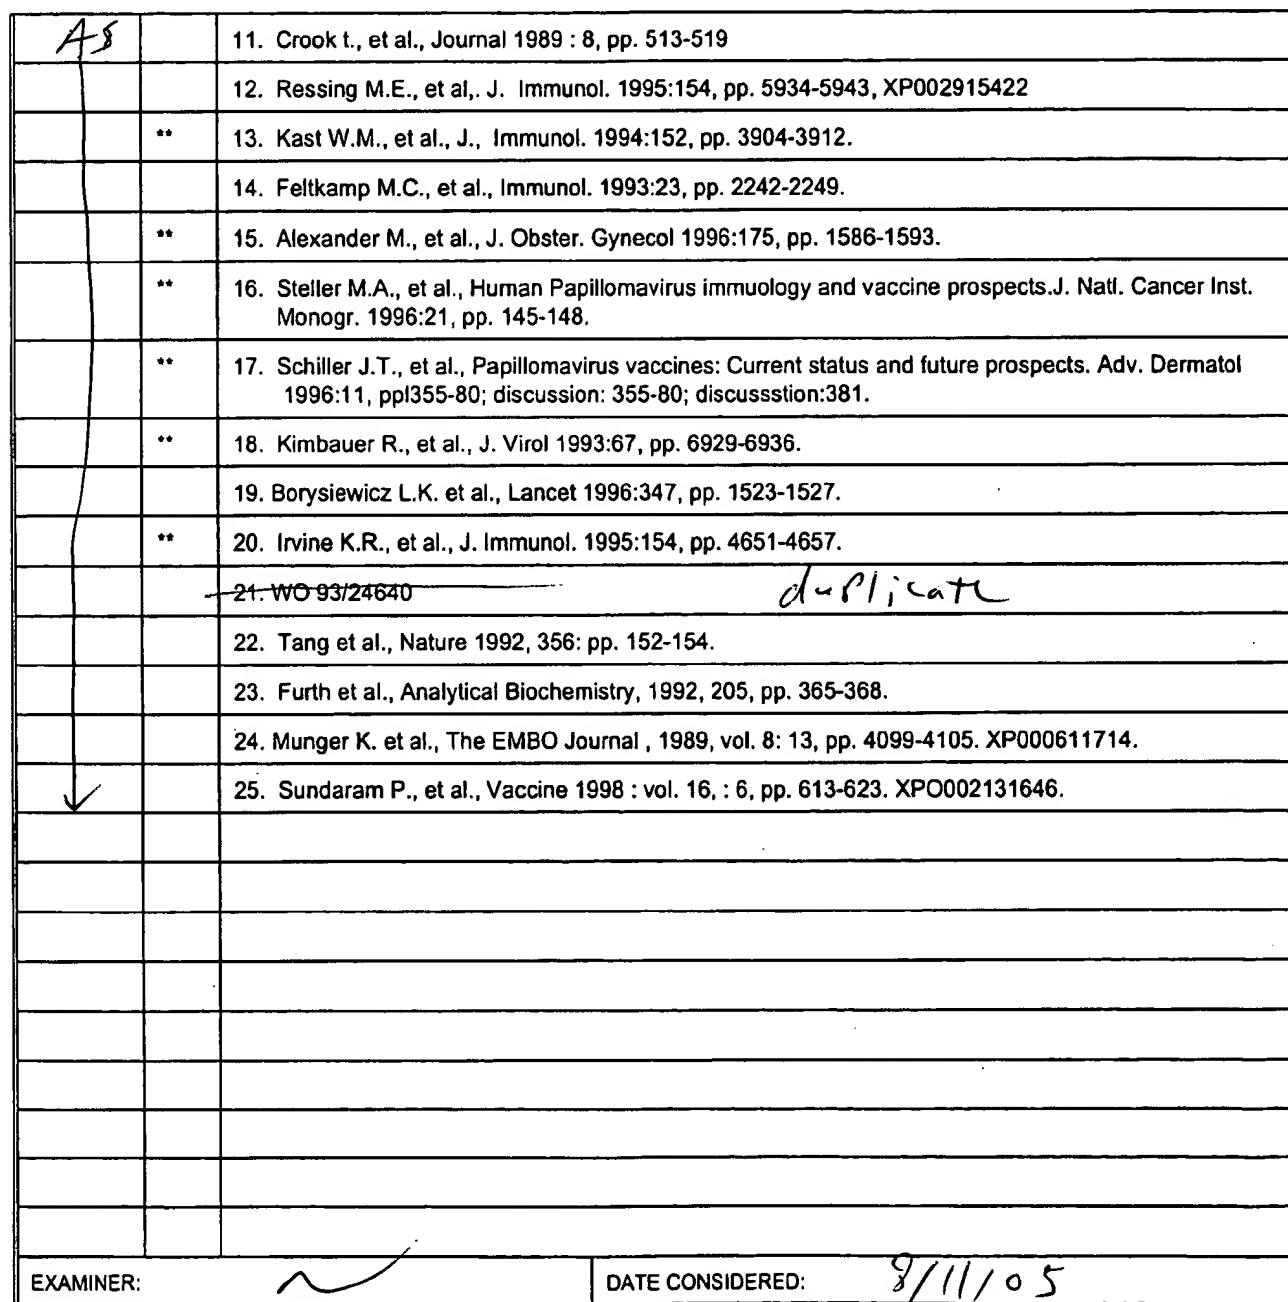 AS
11. Crook t., et al., Journal 1989 : 8, pp. 513-519
12. Ressing M.E., et al,. J. Immunol. 1995:154, pp. 5934-5943, XP002915422
** 13. Kast W.M., et al., J., Immunol. 1994:152, pp. 3904-3912.
14. Feltkamp M.C., et al., Immunol. 1993:23, pp. 2242-2249.
** 15. Alexander M., et al., J. Obster. Gynecol 1996:175, pp. 1586-1593.
** 16. Steller M.A., et al., Human Papillomavirus immuology and vaccine prospects.J. Natl. Cancer Inst.
Monogr. 1996:21, pp. 145-148.
** 17. Schiller J.T., et al., Papillomavirus vaccines: Current status and future prospects. Adv. Dermatol
1996:11, ppl355-80; discussion: 355-80; discussstion:381.
** 18. Kimbauer R., et al., J. Virol 1993:67, pp. 6929-6936.
19. Borysiewicz L.K. et al., Lancet 1996:347, pp. 1523-1527.
** 20. Irvine K.R., et al., J. Immunol. 1995:154, pp. 4651-4657.
21. WO 93/24640 duplicate
22. Tang et al., Nature 1992, 356: pp. 152-154.
23. Furth et al., Analytical Biochemistry, 1992, 205, pp. 365-368.
24. Munger K. et al., The EMBO Journal , 1989, vol. 8: 13, pp. 4099-4105. XP000611714.
25. Sundaram P., et al., Vaccine 1998 : vol. 16, : 6, pp. 613-623. XPO002131646.
EXAMINER: DATE CONSIDERED: 8/11/05